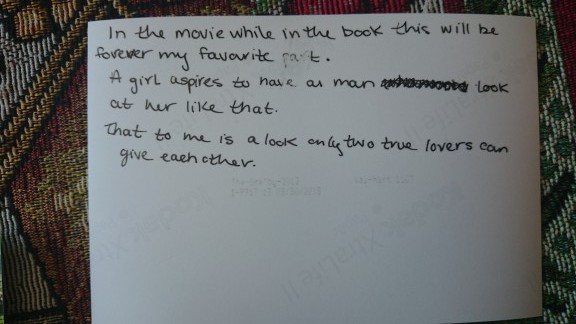 In the movie while in the book this will be
forever my favourite part.
A girl aspires to have an man look
at her like that.
That to me is a look only two true lovers can
give each other.